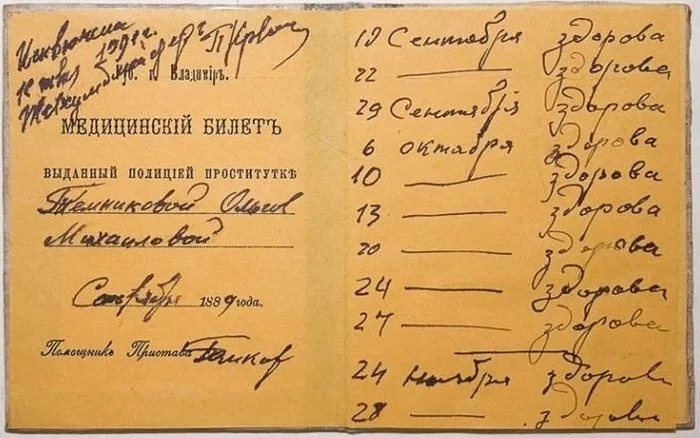 губ. г. Владиміръ.
МЕДИЦИНСКІЙ БИЛЕТЪ
ВЫДАННЫЙ ПОЛИЦІЕЙ ПРОСТИТУТКѢ
Темниковой Ольгѣ
Михаиловой
Сентября 1889 года.
Помощникъ Пристава
19 Сентября здорова
22 — здорова
29 Сентября здорова
6 октября здорова
10 — здорова
13 — здорова
20 — здорова
24 — здорова
27 — здорова
24 ноября здорова
28 — здорова